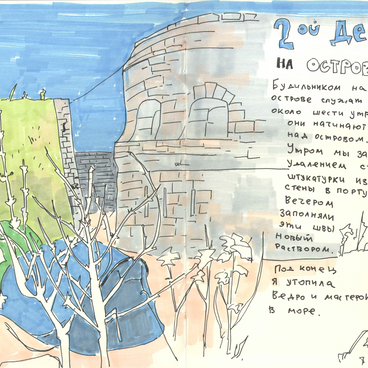 2ой Де
НА ОСТРОВ
Будильником на
острове служат
около шести утр
они начинают
над островом.
Утром мы за
удалением с
штукатурки из
стены в порту
Вечером
заполняли
эти швы
новым
раствором.
Под конец
я утопила
ведро и мастеро
в море.